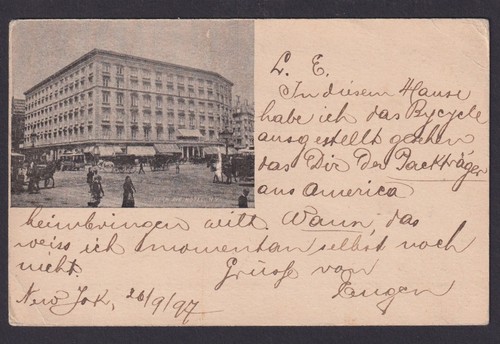 L. E.
In diesem Hause
habe ich das Bycycle
ausgestellt gesehen
das Dir Der Packträger
aus America
heimbringen will. Wann, das
weiss ich momentan selbst noch
nicht. Grüsse von
Eugen
New York, 26/9/97